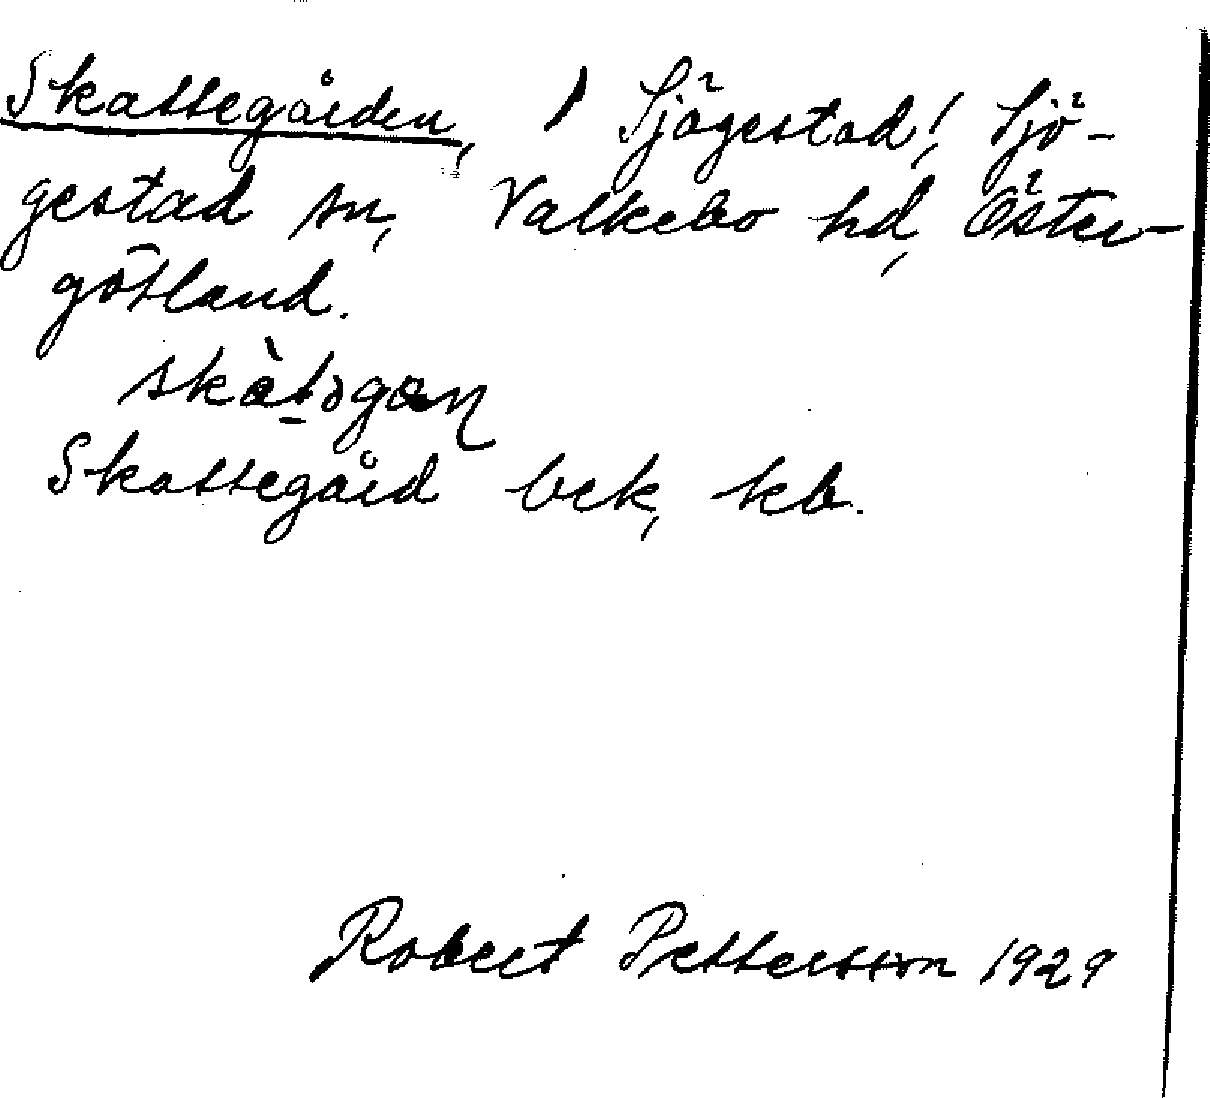 Skattegården, 1 Sjögestad, Sjö-
gestad sn, Valkebo hd, Öster-
götland.
skàt̠əgan
Skattegård bek, kb.
Robert Pettersson 1929